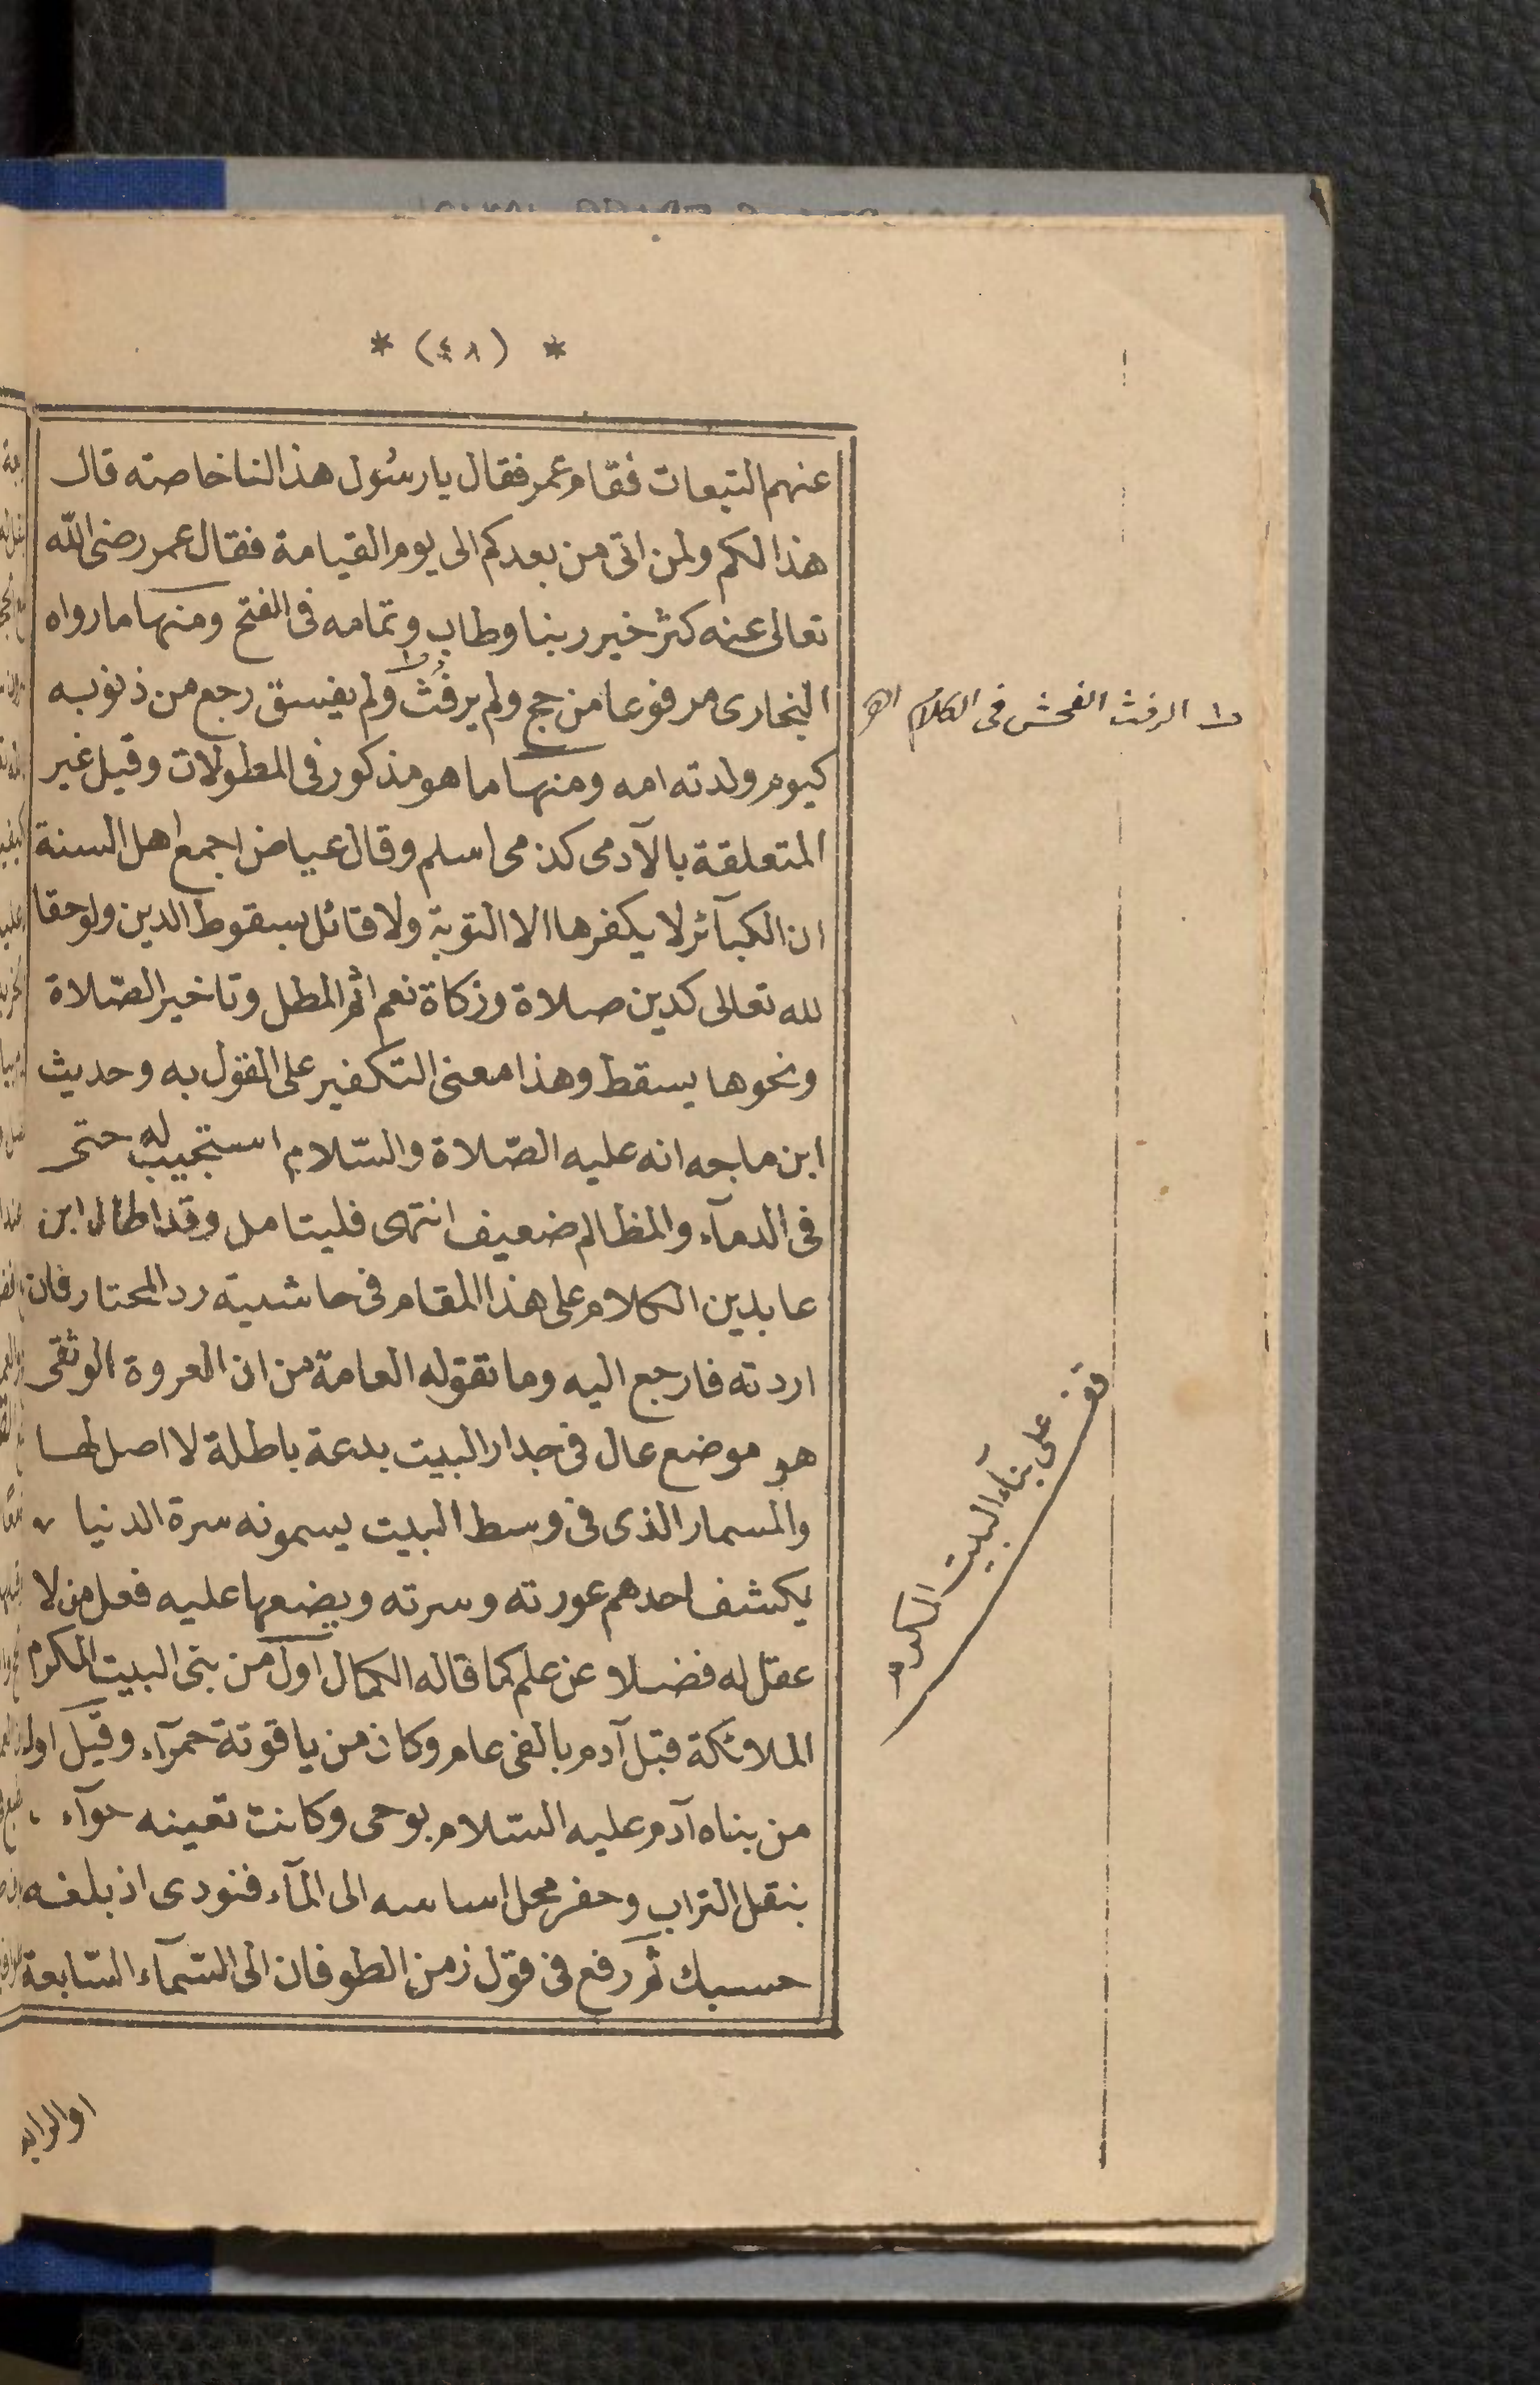 * (٤٨) *
عنهم التبعات فقام عمر فقال يا رسُول هذا لنا خاصته قال
هذا لكم ولمن اتى من بعدكم الى يوم القيامة فقال عمر رضى الله
تعالى عنه كثر خير ربنا وطاب وتمامه فى الفتح ومنها ما رواه
البخارى مرفوعا من حج ولم يرفث (١) ولم يفسق رجع من ذنوبه
(١) الرفث الفحش فى الكلام اهـ
كيوم ولدته امه ومنها ما هو مذكور فى المطولات وقيل غير
المتعلقة بالآدمى كذمى اسلم وقال عياض اجمع اهل السنة
ان الكبآئر لا يكفرها الا التوبة ولا قائل بسقوط الدين ولو حقا
لله تعالى كدين صلاة وزكاة نعم اثم المطل وتاخير الصّلاة
ونحوها يسقط وهذا معنى التكفير على القول به وحديث
ابن ماجه انه عليه الصّلاة والسّلام استجيب له حتى
فى الدمآء والمظالم ضعيف انتهى فليتامل وقد اطال ابن
عابدين الكلام على هذا المقام فى حاشيته رد المحتار فان
اردته فارجع اليه وما تقوله العامة من ان العروة الوثقى
هو موضع عال فى جدار البيت بدعة باطلة لا اصل لها
والمسمار الذى فى وسط البيت يسمونه سرة الدنيا
يكشف احدهم عورته وسرته ويضعها عليه فعل من لا
عقل له فضلا عن علم كما قاله الكمال اول من بنى البيت المكرم
قف على بنآء البيت المكرم
الملائكة قبل آدم بالفى عام وكان من ياقوتة حمرآء وقيل اول
من بناه آدم عليه السّلام بوحى وكانت تعينه حوآء
بنقل التراب وحفر محل اساسه الى المآء فنودى اذ بلغه
حسبك ثم رفع فى قول زمن الطوفان الى السّمآء السّابعة
او الرابعة